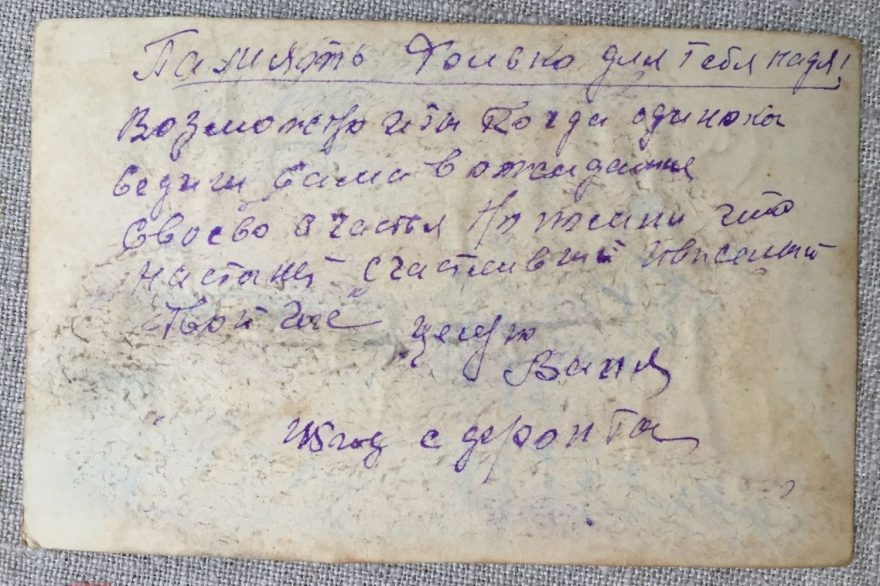 Память Только для тебя надя!
Возможно и ты Когда одинока
Сидиш Сама в ожидание
Своево счастья Но помни что
настанет счастливый Ивиселый
Твой час целую
Ваня
45 год с фронта